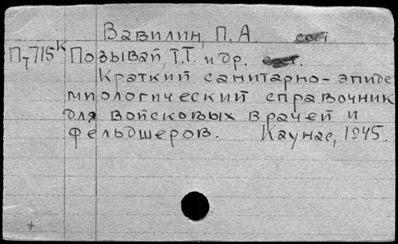 Вавилин, П. А. сост
Пт715к Позывай, Т.Т. и др.
Краткий санитарно-эпиде
миологический справочник
для войсковых врачей и
фельдшеров. Каунас, 1945.